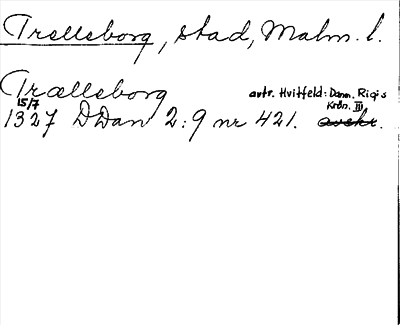 Trelleborg, stad, Malm. l.
Trælleborg avtr. Hvitfeld: Danm. Rigis
15/7 Krön. III
1327 DDan 2:9 nr 421. avskr.